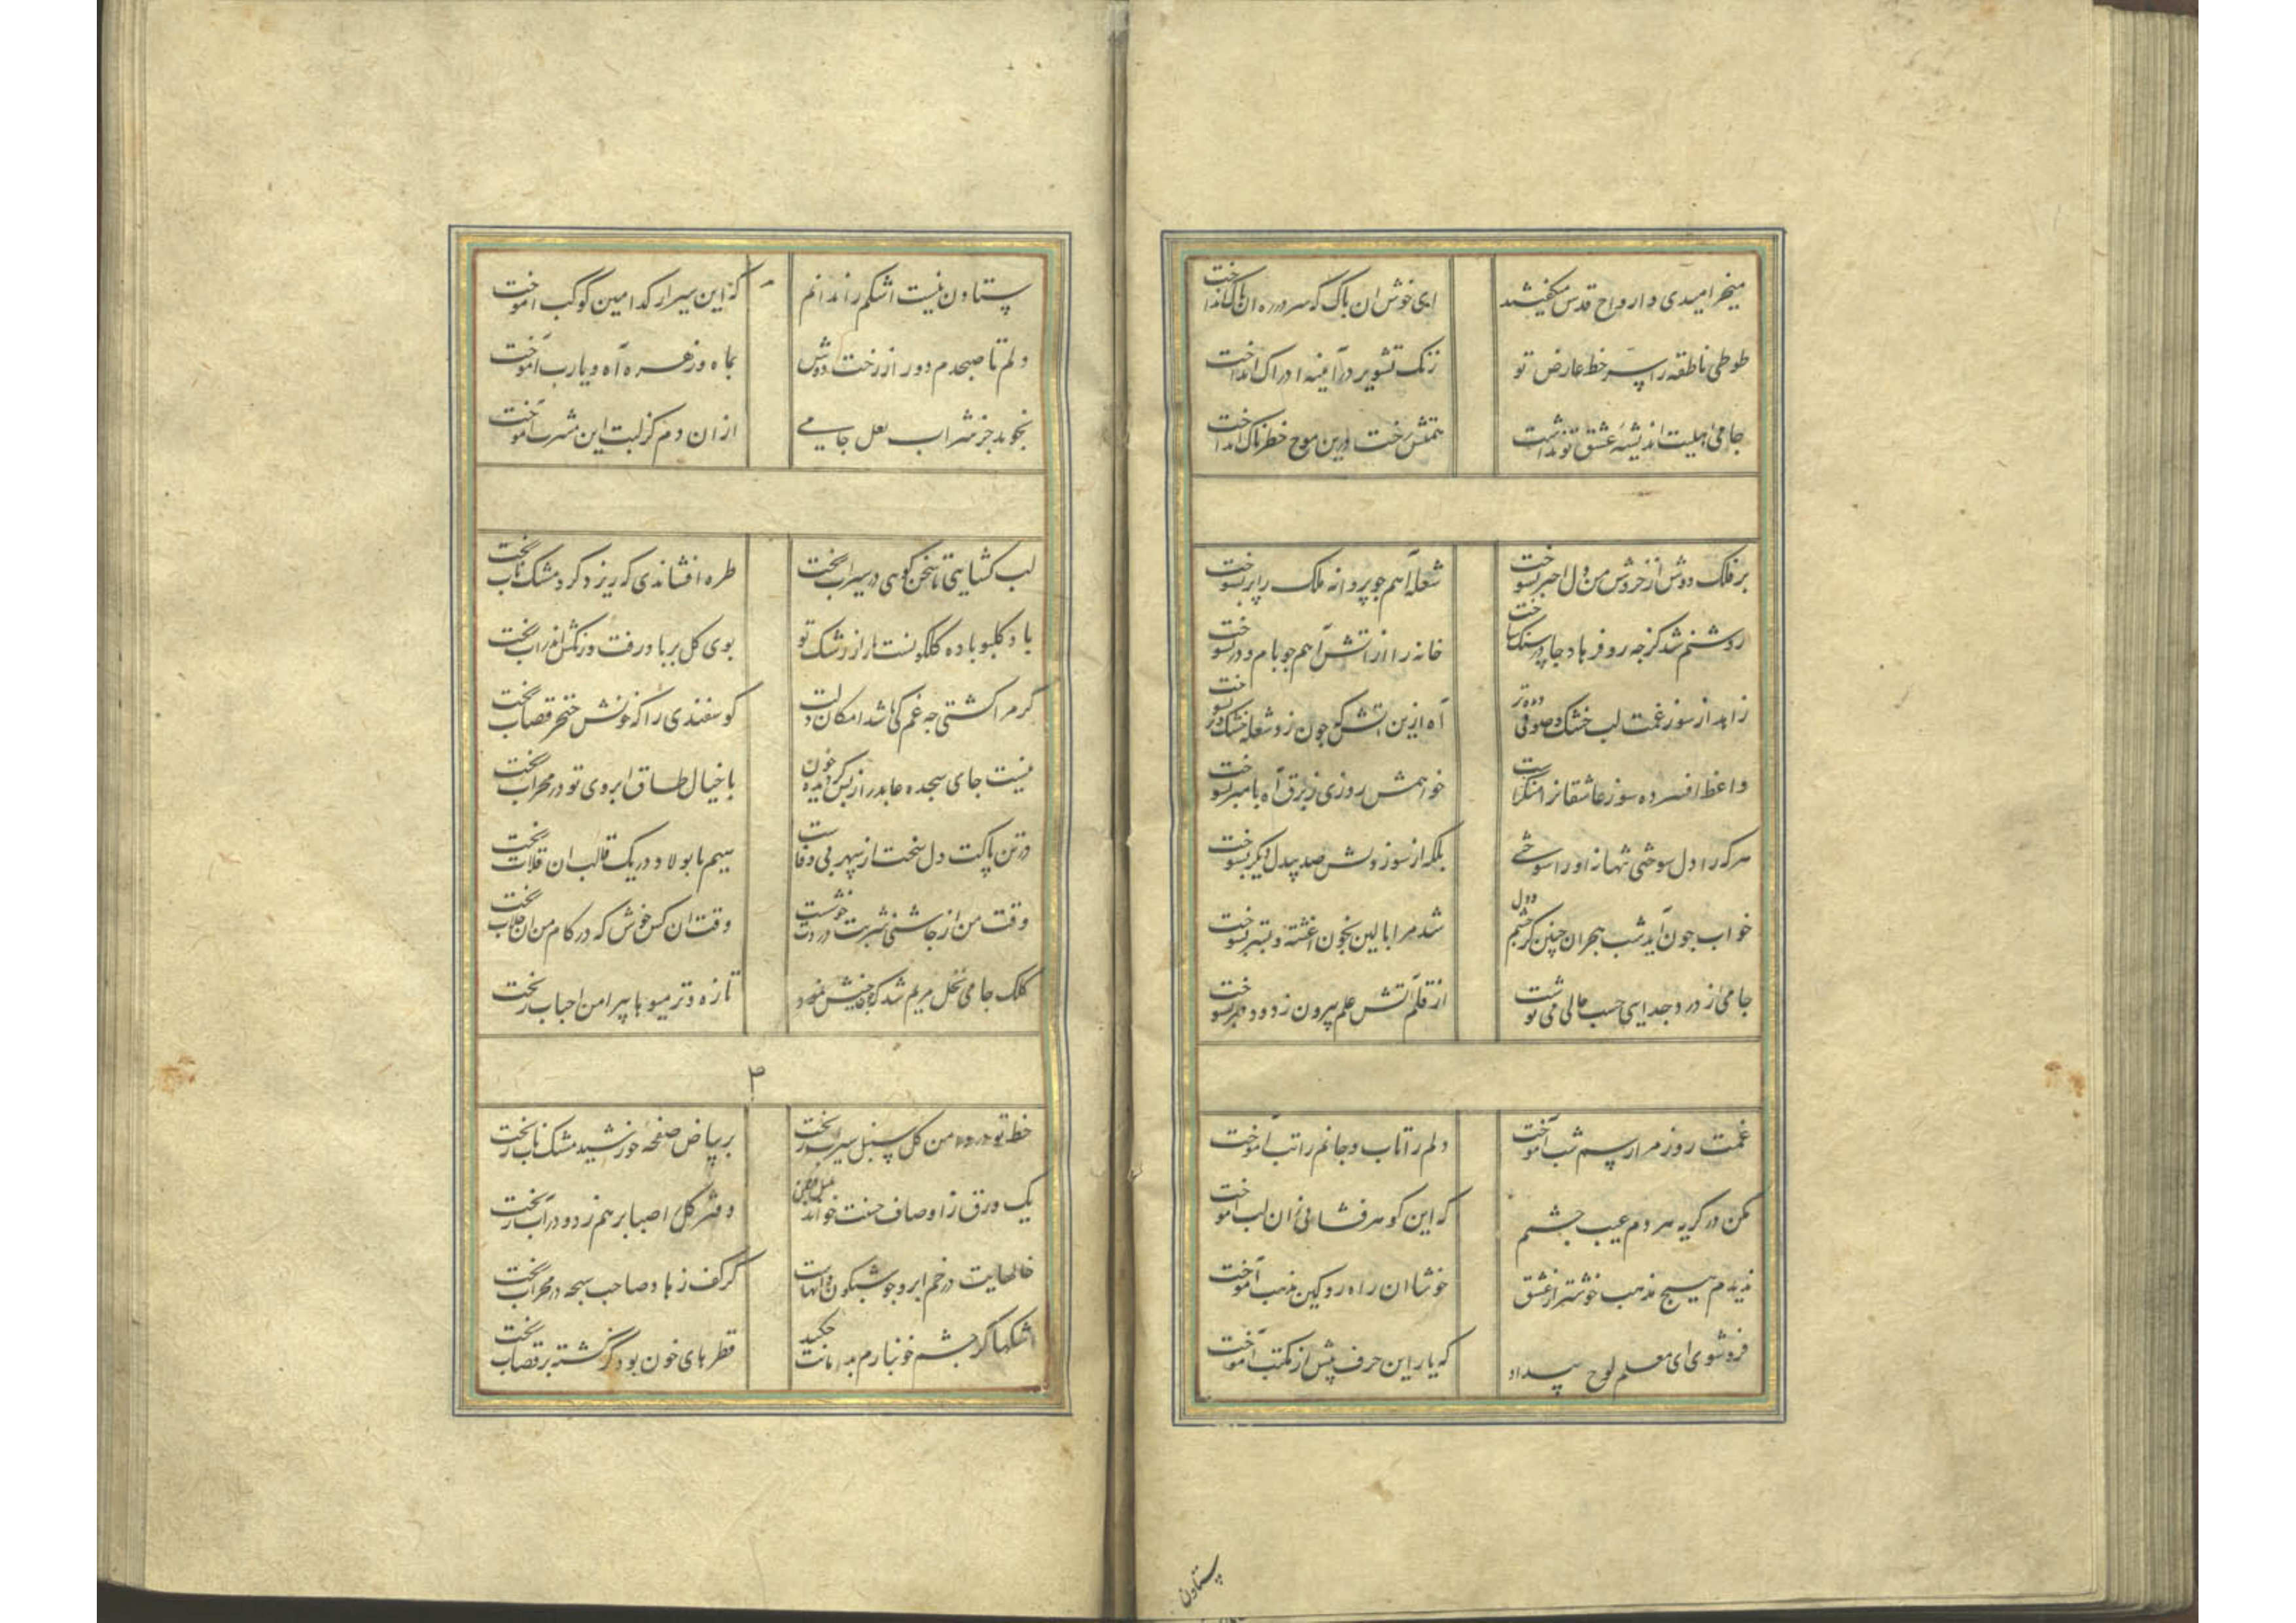 میخرامیدی و ارواح قدس میکفتند
ای خوش ان پاک که سر در ره ان پاک انداخت
طوطی ناطقه را سر خط عارض تو
زنک تشویر در آیینه ادراک انداخت
جامی اهلیت اندیشه عشق تو نداشت
رخت درین موج خطرناک انداخت
بر فلک دوش از خروش من دل اختر بسوخت
شعله آهم جو پروانه ملک را پر بسوخت
روشنم شد کز جه رو فرهاد جا در سنک ساخت
خانه را از اتش آهم جو بام و در بسوخت
زاهد از سوز غمت لب خشک و صوفی دیده تر
آه ازین اتش که جون زد شعله خشک و تر بسوخت
واعظ افسرده سوز عاشقانرا منکرست
خواهمش روزی ز برق آه با منبر بسوخت
هر که را دل سوختی تنها نه او را سوختی
بلکه از سوز دلش صد بیدل دیکر بسوخت
خواب جون آید شب هجران جنین کز جشم و دل
شد مرا بالین بخون اغشته و بستر بسوخت
جامی از درد جدایی حسب حالی می نوشت
از قلم آتش علم بیرون زد و دفتر بسوخت
غمت روز مرا رسم شب آموخت
دلم را تاب و جانم را تب آموخت
مکن در کریه هر دم عیب جشمم
که این کوهر فشانی زان لب اموخت
ندیدم هیج مذهب خوشتر از عشق
خوشا ان راه رو کین مذهب آموخت
فروشوی ای معلم لوح بیداد
که یار این حرف پیش از مکتب آموخت
ستاون
ستاون نیست اشکم را ندانم
که این سیر از کدامین کوکب اموخت
دلم تا صبحدم دور از رخت دوش
بماه و زهره آه و یارب آموخت
نجوید جز شراب لعل جامی
ازان دم کز لبت این مشرب آموخت
لب کشایی تا سخن کویی در سیراب ریخت
طره افشاندی که ریزد کرد مشک ناب ریخت
باد کلبو باده کلکونست از رشک تو
بوی کل بر باد رفت و رنکش اندر اب ریخت
کر مرا کشتی جه غم کی باشد امکان دیت
کوسفندی را که خونش خنجر قصاب ریخت
نیست جای سجده عابد را ز بس کز دیده خون
با خیال طاق ابروی تو در محراب ریخت
در تن پاکت دل سخت از سپهر بی وفاست
سیم با بولاد در یک قالب ان قلاب ریخت
وقت من از جاشنی شربت دردت خوشست
وقت ان کس خوش که در کام من ان جلاب ریخت
کلک جامی نخل مریم شد که جون جنبش نمود
تازه و تر میوها پیرامن احباب ریخت
۳
خط تو در دامن کل سنبل سیراب ریخت
بر بیاض صفحه خورشید مشک ناب ریخت
یک ورق ز اوصاف حسنت خواند
دفتر کل را صبا بر هم زد و در آب ریخت
خالهایت در خم ابرو جو شبکون دانهاست
کز کف زهاد صاحب سبحه در محراب ریخت
اشکها کز جشم خونبارم بدامانت جکید
قطرهای خون بود کز کشته بر قصاب ریخت